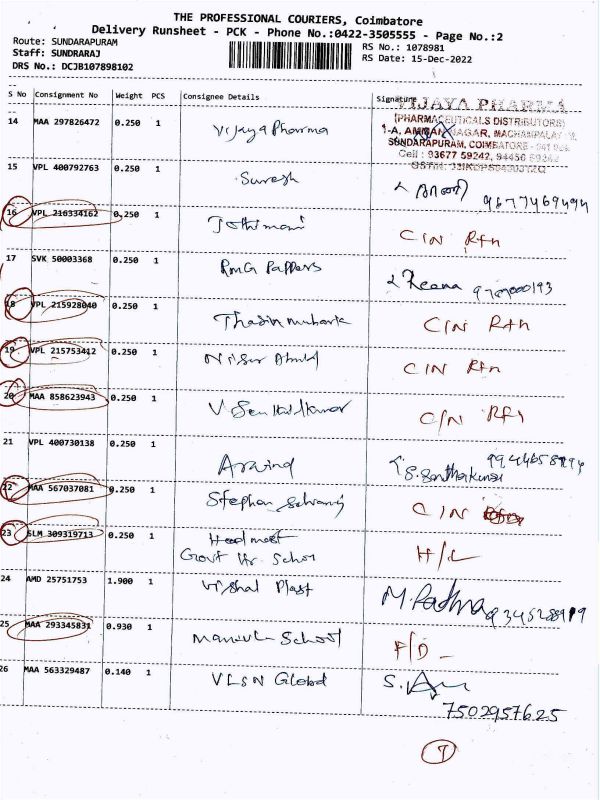 THE PROFESSIONAL COURIERS, Coimbatore
Delivery Runsheet - PCK - Phone No.:0422-3505555 - Page No.:2
Route: SUNDARAPURAM
RS No.: 1078981
Staff: SUNDRARAJ
RS Date: 15-Dec-2022
DRS No.: DCJB107898102
S No Consignment No Weight PCS Consignee Details Signature
14 MAA 297826472 0.250 1 Vijaya Pharma
VIJAYA PHARMA
(PHARMACEUTICALS DISTRIBUTORS)
1-A, AMMAN NAGAR, MACHAMPALAYAM
SUNDARAPURAM, COIMBATORE
Cell : 93677 59242, 94456
15 VPL 400792763 0.250 1 Suresh
9677469494
16 VPL 216334162 0.250 1 Jothimani C/N Rtn
17 SVK 50003368 0.250 1 RMG Pappers Reena
18 VPL 215928640 0.250 1 C/N Rtn
19 VPL 215753412 0.250 1 C/N Rtn
20 MAA 858623943 0.250 1 C/N Rtn
21 VPL 400730138 0.250 1 Aravind
22 MAA 567037081 0.250 1 Stephan C/N
23 SLM 309319713 0.250 1 Headmast H/L
Govt Hr. School
24 AMD 25751753 1.900 1 Vishal Plast M. Padma
25 MAA 293345831 0.930 1 School F/D
26 MAA 563329487 0.140 1 VLSN Global
7502957625
7